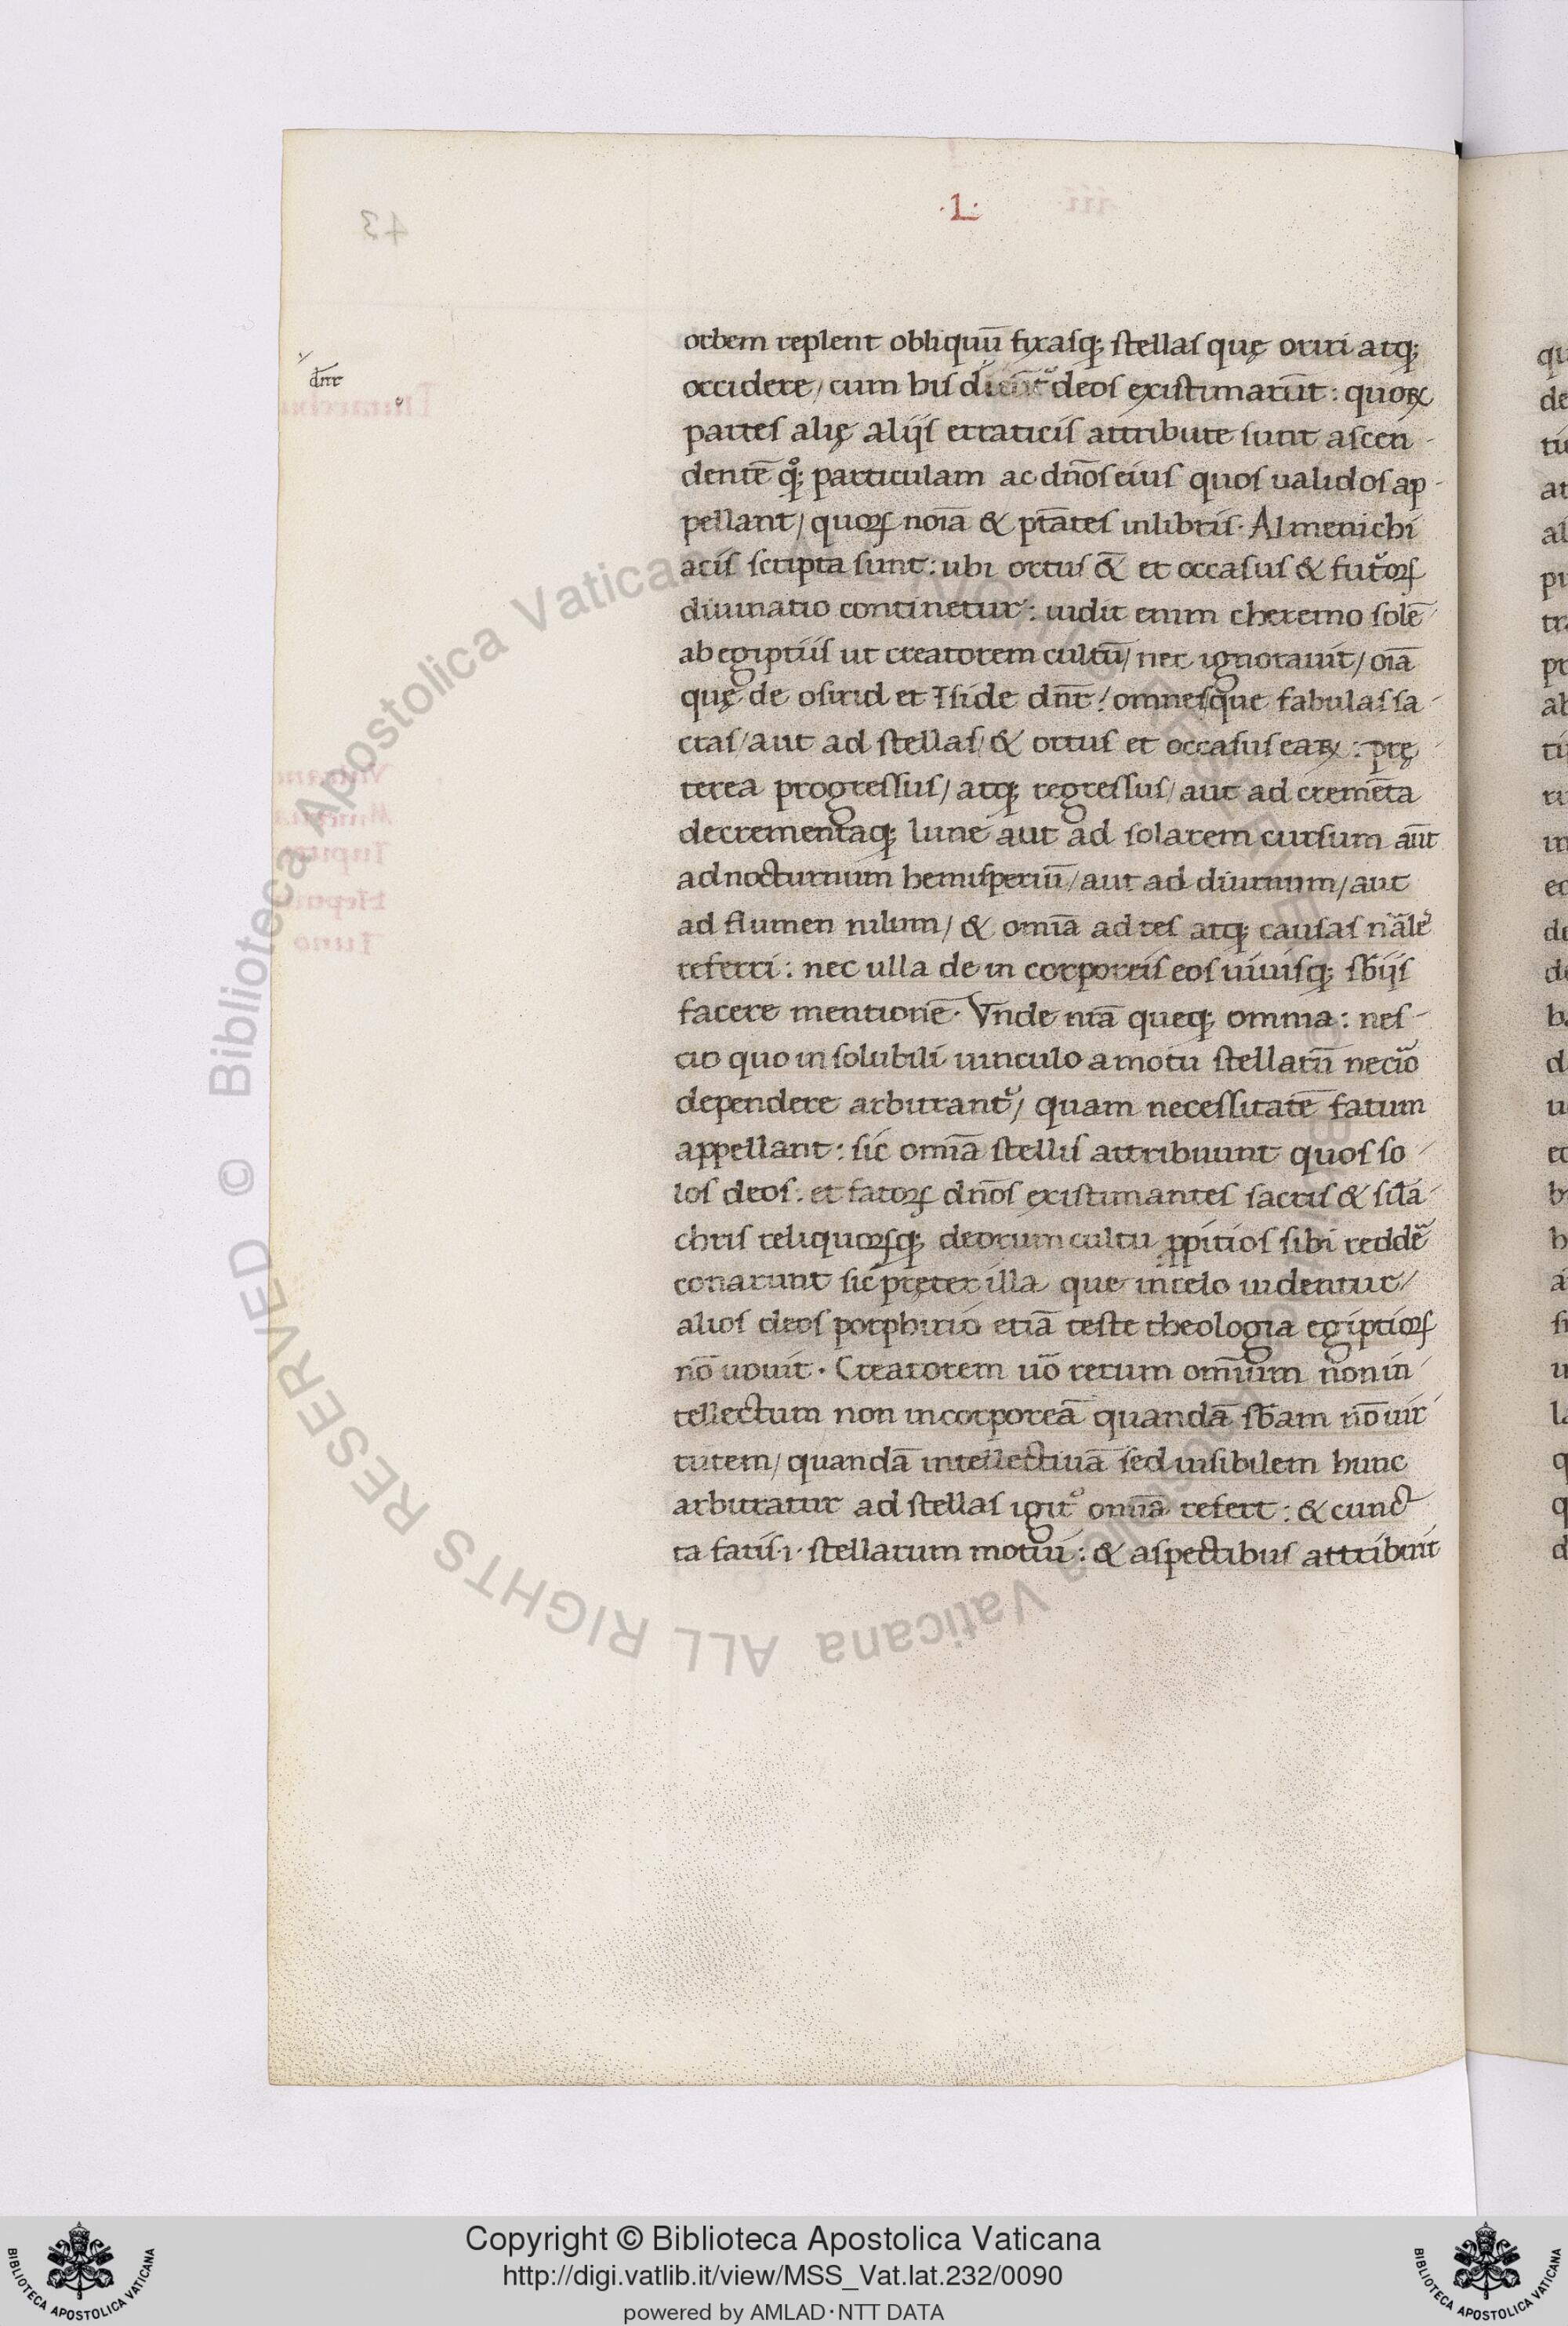 ·L·
orbem replent obliquū fixasq; stellas quę oriri atq;
dn̄t
occidere / cum his deos existimarūt : quoꝝ
partes alię alijs erraticis attribute sunt ascen-
dentē q̊; particulam ac dn̄os eius quos ualidos ap-
pellant / quoꝝ noīa & ptātes in libris · Almenichi
acis scripta sunt : ubi ortus & et occasus & futoꝝ
diuinatio continetur : uidit enim cheremo solē
ab egiptiis ut creatorem cultū / nec ignorauit / oīa
quę de osirid et Iside dn̄t / omnesque fabulas sa-
cras / aut ad stellas / & ortus et occasus eaꝝ : prę-
terea progressus / atq; regressus / aut ad cremēta
decrementaq; lune aut ad solarem cursum aūt
ad nocturnum hemisperiū / aut ad diurnum / aut
ad flumen nilum / & omīa ad res atq; causas nāle
referri : nec ulla de in corporeis eos uiuisq; sb̄ijs
facere mentionē · Vnde nrā queq; omnia : nes-
cio quo in solubili uinculo a motu stellarū necio
dependere arbitrant / quam necessitatē fatum
appellant : sic omīa stellis attribuunt quos so-
los deos : et fatoꝝ dn̄os existimantes sacris & sila-
chris reliquoꝝq; deorum cultu ꝓpitios sibi redde
conarunt sic pręter illa que in celo uidentur /
alios deos porphirio etiā teste theologia egiptioꝝ
nō nouit · Creatorem uō rerum omīum non in-
tellectum non incorporeā quandā sb̄am nō uir-
tutem / quandā intellectiuā sed uisibilem hunc
arbitratur ad stellas igit omīa refert : & cunc-
ta fatis ·i· stellarum motui : & aspectibus attribuit
Copyright © Biblioteca Apostolica Vaticana
http://digi.vatlib.it/view/MSS_Vat.lat.232/0090
powered by AMLAD·NTT DATA